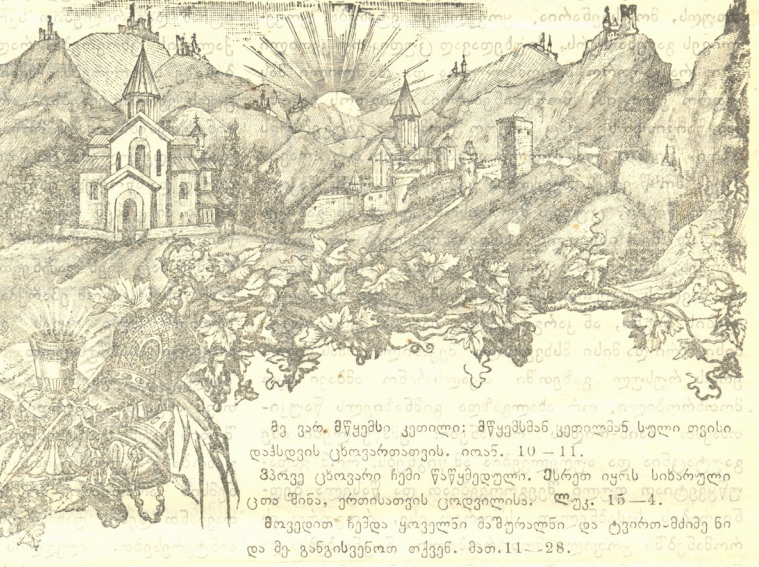 მე ვარ მწყემსი კეთილი: მწყემსმან კეთილმან სული თვისი
დაჰსდვის ცხოვართათვის. იოან. 10 — 11.
ვპოვე ცხოვარი ჩემი წაწყმედული. ესრეთ იყოს სიხარული
ცთა შინა, ერთისათვის ცოდვილისა. ლუკ. 15 —4.
მოვედით ჩემდა ყოველნი მაშურალნი და ტვირთ-მძიმენი
და მე განგისვენოთ თქვენ. მათ.11—28.